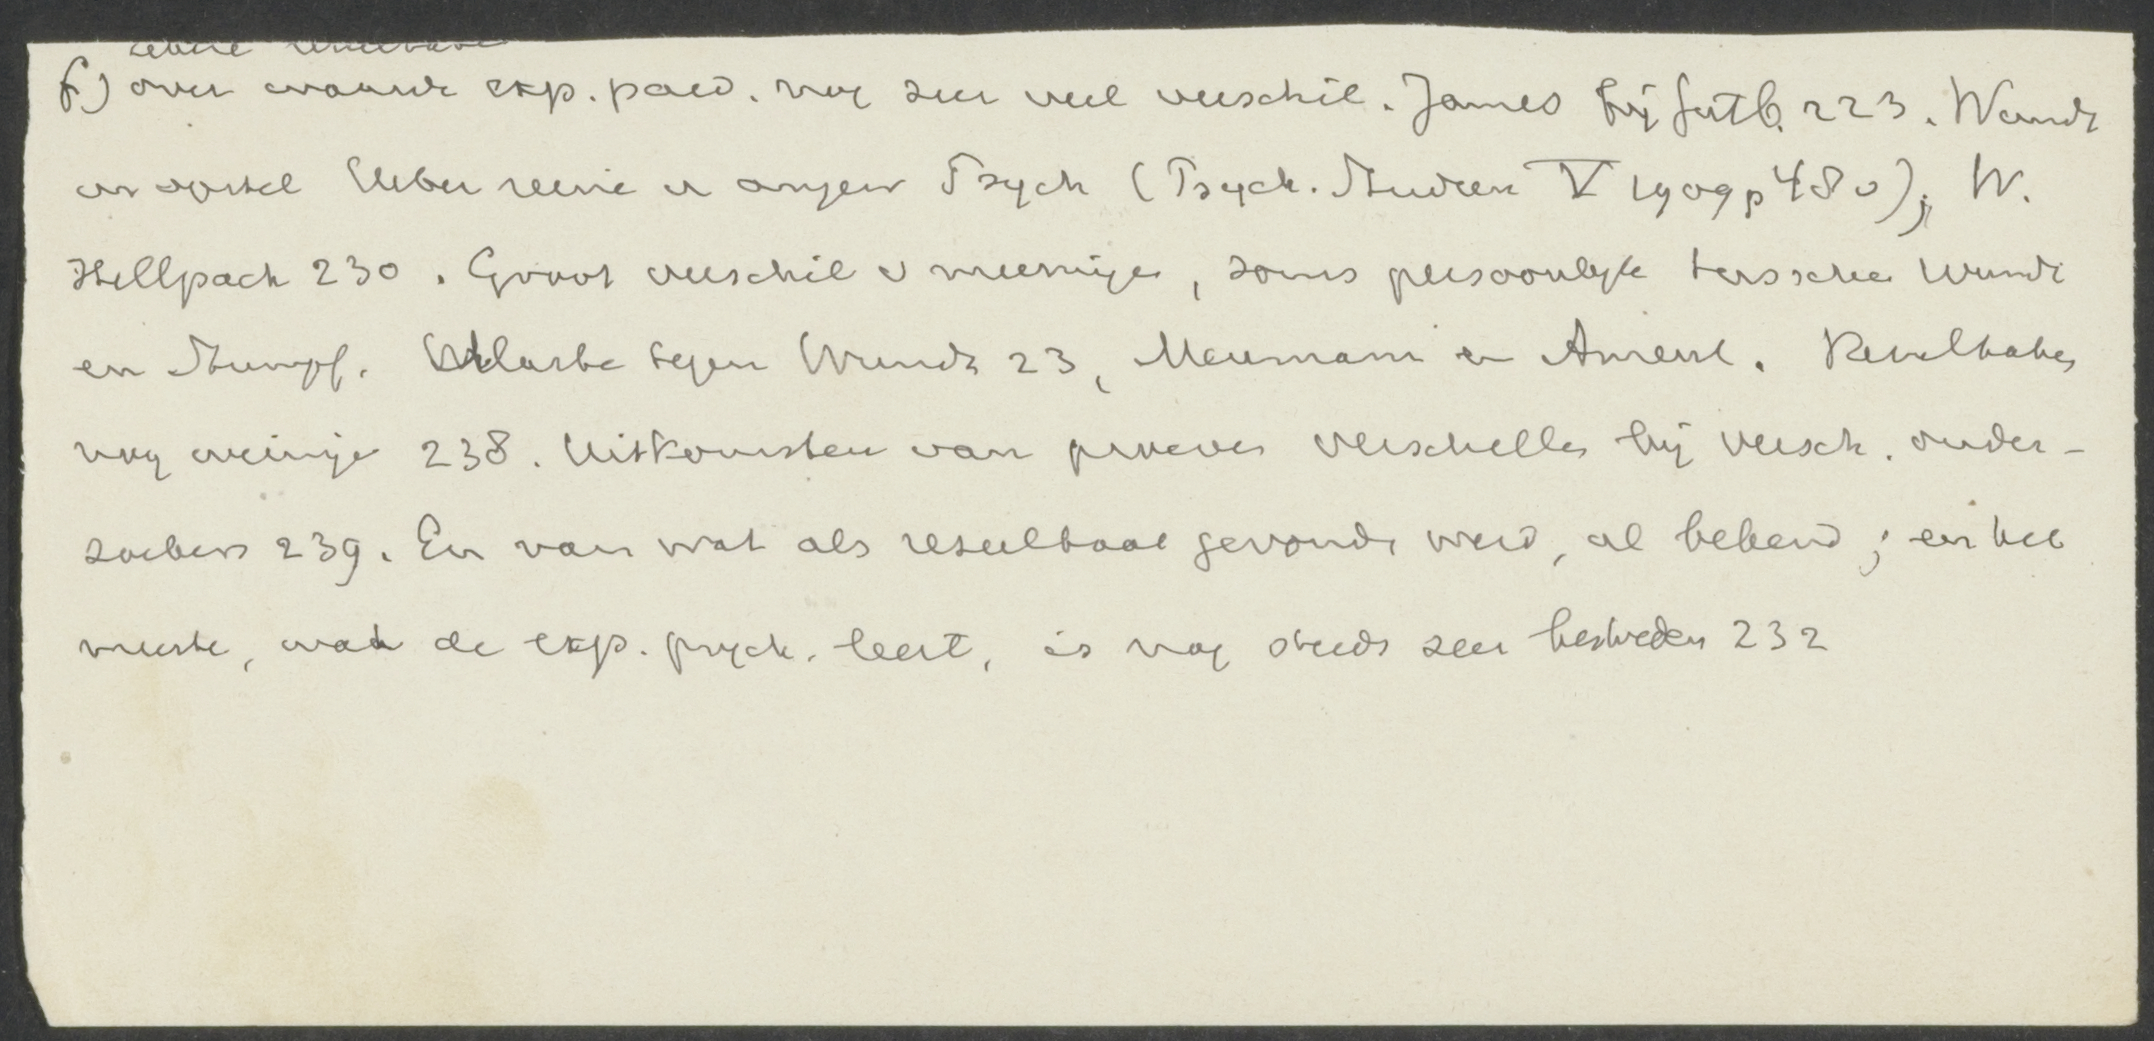 f) over waarde exp. paed. nog zeer veel verschil. James bij Gutb. 223. Wundt
en oordeel Ueber reine u angew Psych (Psych. Studien V 1909 p 480); W.
Hellpach 230. Groot verschil v meeninge, soms persoonlyk tusschen Wundt
en Stumpf. Marbe tegen Wundt 23, Meumann en Ament. Resultaten
nog weinige 238. Uitkomsten van proeven verschillen bij versch. onder-
zoekers 239. En van wat als resultaat gevonde werd, al bekend; en het
meeste, wat de exp. psych. leert, is nog steeds zeer bestreden 232